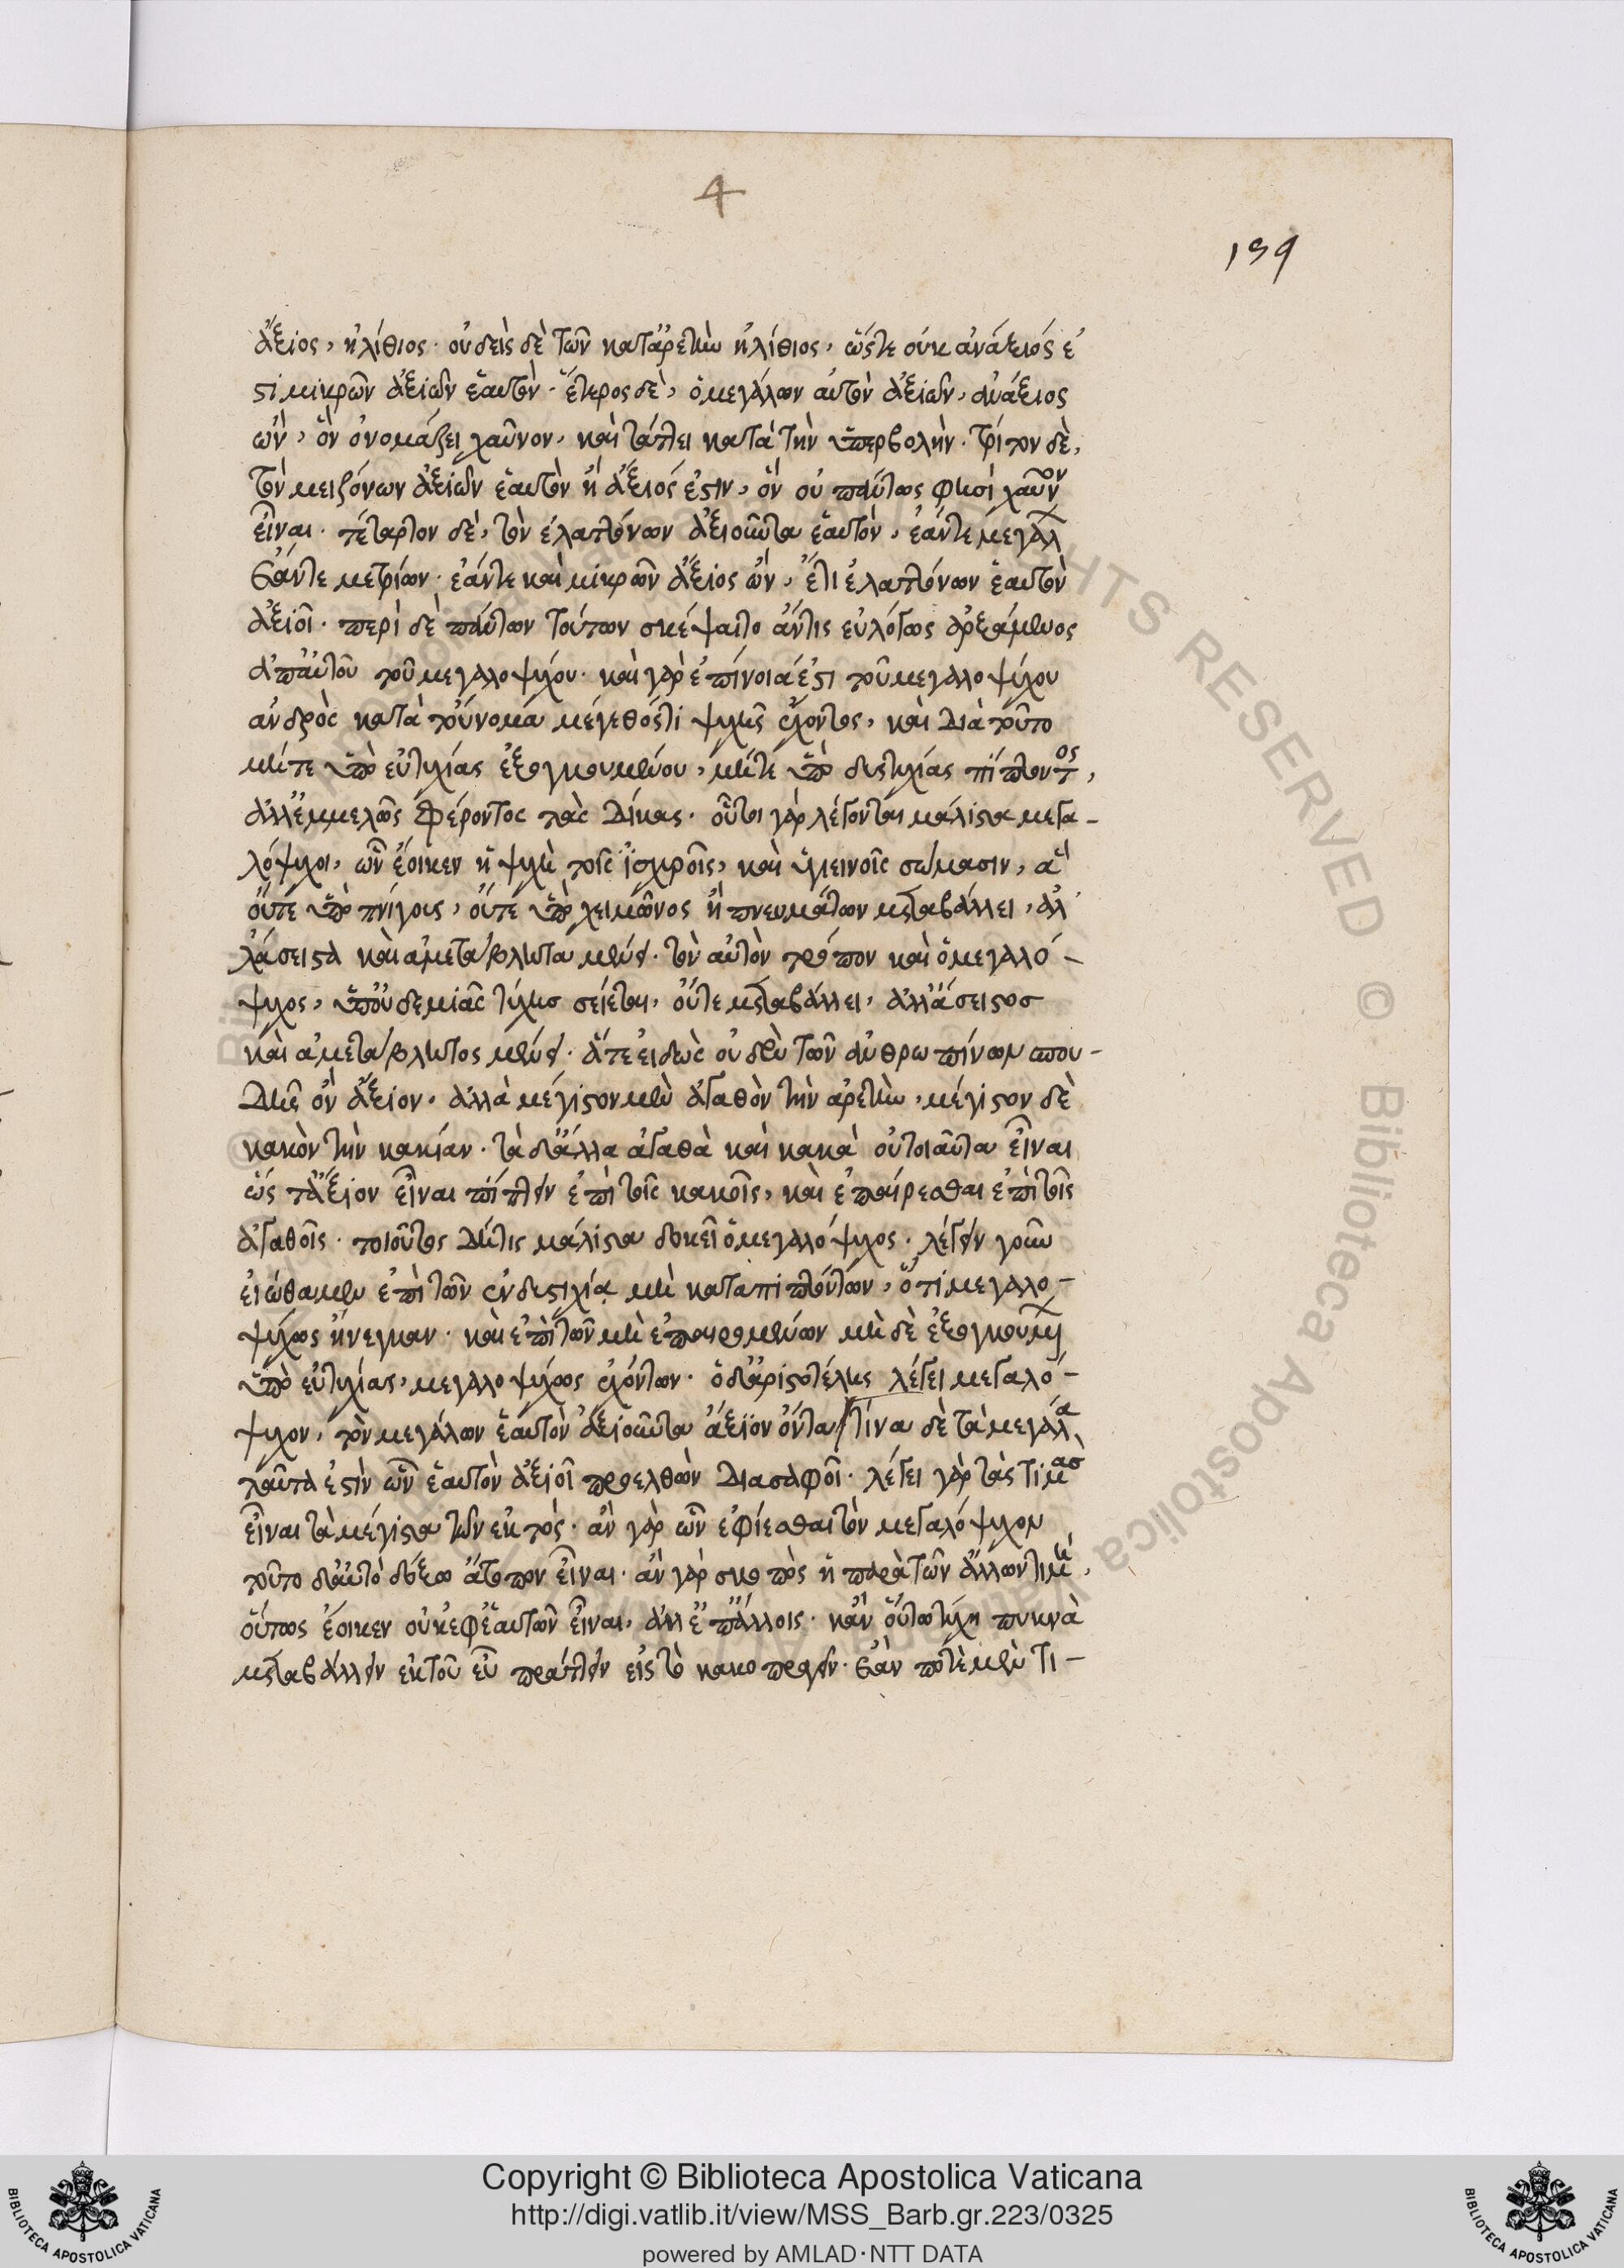 4
159
ἄξιος, ἠλίθιος· οὐδεὶς δὲ τῶν κατ' ἀρετὴν ἠλίθιος, ὥστε οὐκ ἀνάξιός ἐ
στι μικρῶν ἀξιῶν ἑαυτόν· ἕτερος δὲ, ὁ μεγάλων αὑτὸν ἀξιῶν, ἀνάξιος
ὤν, ὃν ὀνομάζει χαῦνον, καὶ τάττει κατὰ τὴν ὑπερβολὴν· τρίτον δὲ,
τὸν μειζόνων ἀξιῶν ἑαυτὸν ἢ ἄξιός ἐστιν, ὃν οὐ πάντως φησὶ χαῦνον
εἶναι· τέταρτον δὲ, τὸν ἐλαττόνων ἀξιοῦντα ἑαυτόν, ἐάντε μεγάλ
ἐάντε μετρίων· ἐάντε καὶ μικρῶν ἄξιος ὤν, ἔτι ἐλαττόνων ἑαυτὸν
ἀξιοῖ· περὶ δὲ πάντων τούτων σκέψαιτο ἄν τις εὐλόγως ἀρξάμενος
ἀπ' αὐτοῦ τοῦ μεγαλοψύχου· καὶ γὰρ ἐπίνοιά ἐστι τοῦ μεγαλοψύχου
ἀνδρὸς κατὰ τοὔνομα μέγεθός τι ψυχῆς ἔχοντος, καὶ διὰ τοῦτο
μήτε ὑπὸ εὐτυχίας ἐξογκουμένου, μήτε ὑπὸ δυστυχίας πίπτοντος,
ἀλλ' ἐμμελῶς φέροντος τὰς δίκας· οὗτοι γὰρ λέγονται μάλιστα μεγα-
λόψυχοι, ὧν ἔοικεν ἡ ψυχὴ τοῖς ἰσχυροῖς, καὶ ὑγιεινοῖς σώμασιν, ἃ
οὔτε ὑπὸ πνίγους, οὔτε ὑπὸ χειμῶνος ἢ πνευμάτων μεταβάλλει, ἀλ
λ' ἄσειστα καὶ ἀμετάβλητα μένει· τὸν αὐτὸν τρόπον καὶ ὁ μεγαλό-
ψυχος, ὑπ' οὐδεμιᾶς τύχης σείεται, οὔτε μεταβάλλει, ἀλλ' ἄσειστος
καὶ ἀμετάβλητος μένει· ἅτε εἰδὼς οὐδὲν τῶν ἀνθρωπίνων σπου-
δῆς ὂν ἄξιον· ἀλλὰ μέγιστον μὲν ἀγαθὸν τὴν ἀρετὴν, μέγιστον δὲ
κακὸν τὴν κακίαν· τὰ δ' ἄλλα ἀγαθὰ καὶ κακὰ οὐ τοιαῦτα εἶναι
ὥς τ' ἄξιον εἶναι πίπτειν ἐπὶ τοῖς κακοῖς, καὶ ἐπαίρεσθαι ἐπὶ τοῖς
ἀγαθοῖς· τοιοῦτος δή τις μάλιστα δοκεῖ ὁ μεγαλόψυχος· λέγειν γοῦν
εἰώθαμεν ἐπὶ τῶν ἐν δυστυχίᾳ μὴ καταπιπτόντων, ὅτι μεγαλο-
ψύχως ἤνεγκαν· καὶ ἐπὶ τῶν μὴ ἐπαιρομένων μὴ δὲ ἐξογκουμ
ὑπὸ εὐτυχίας, μεγαλοψύχως ἐχόντων· ὁ δ' ἀριστοτέλης λέγει μεγαλό-
ψυχον, τὸν μεγάλων ἑαυτὸν ἀξιοῦντα ἄξιον ὄντα/ τίνα δὲ τὰ μεγάλα
ταῦτα ἐστὶν ὧν ἑαυτὸν ἀξιοῖ προελθὼν διασαφοῖ· λέγει γὰρ τὰς τιμὰσ
εἶναι τὰ μέγιστα τῶν ἐκτός· ἂν γὰρ ὧν ἐφίεσθαι τὸν μεγαλόψυχον
τοῦτο δ' αὐτὸ δόξω ἄτοπον εἶναι· ἂν γὰρ σκοπὸς ἡ παρὰ τῶν ἄλλων τιμὴ,
οὕτως ἔοικεν οὐκ ἐφ' ἑαυτῶν εἶναι, ἀλλ' ἐπ' ἄλλοις· κἂν οὕτω τύχῃ πυκνὰ
μεταβάλλειν ἐκ τοῦ εὖ πράττειν εἰς τὸ κακοπραγεῖν· ἐὰν ποτὲ μὲν τι-
Copyright © Biblioteca Apostolica Vaticana
http://digi.vatlib.it/view/MSS_Barb.gr.223/0325
powered by AMLAD·NTT DATA